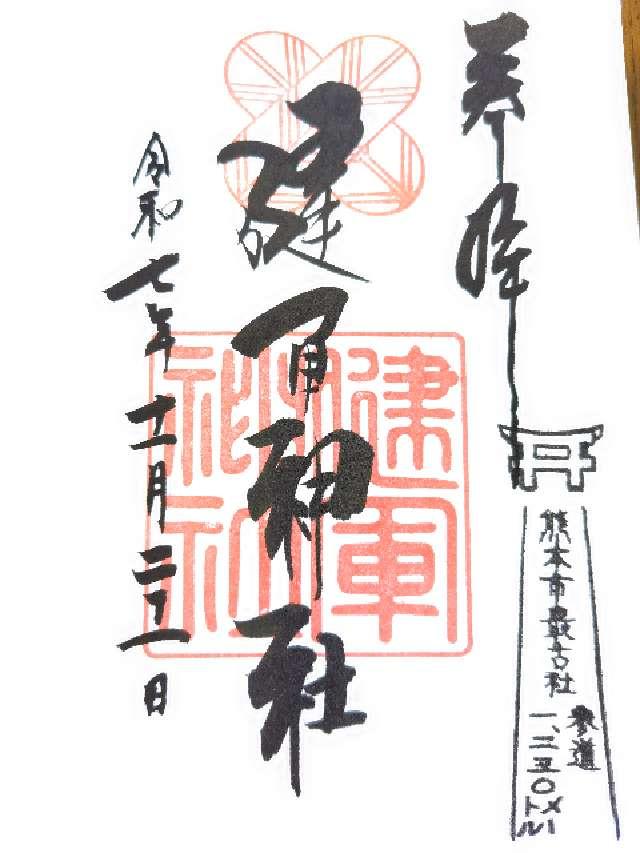 奉拝
健軍神社
令和七年十二月二十一日
健軍
神社
熊本市最古社
参道
一、二五〇メートル